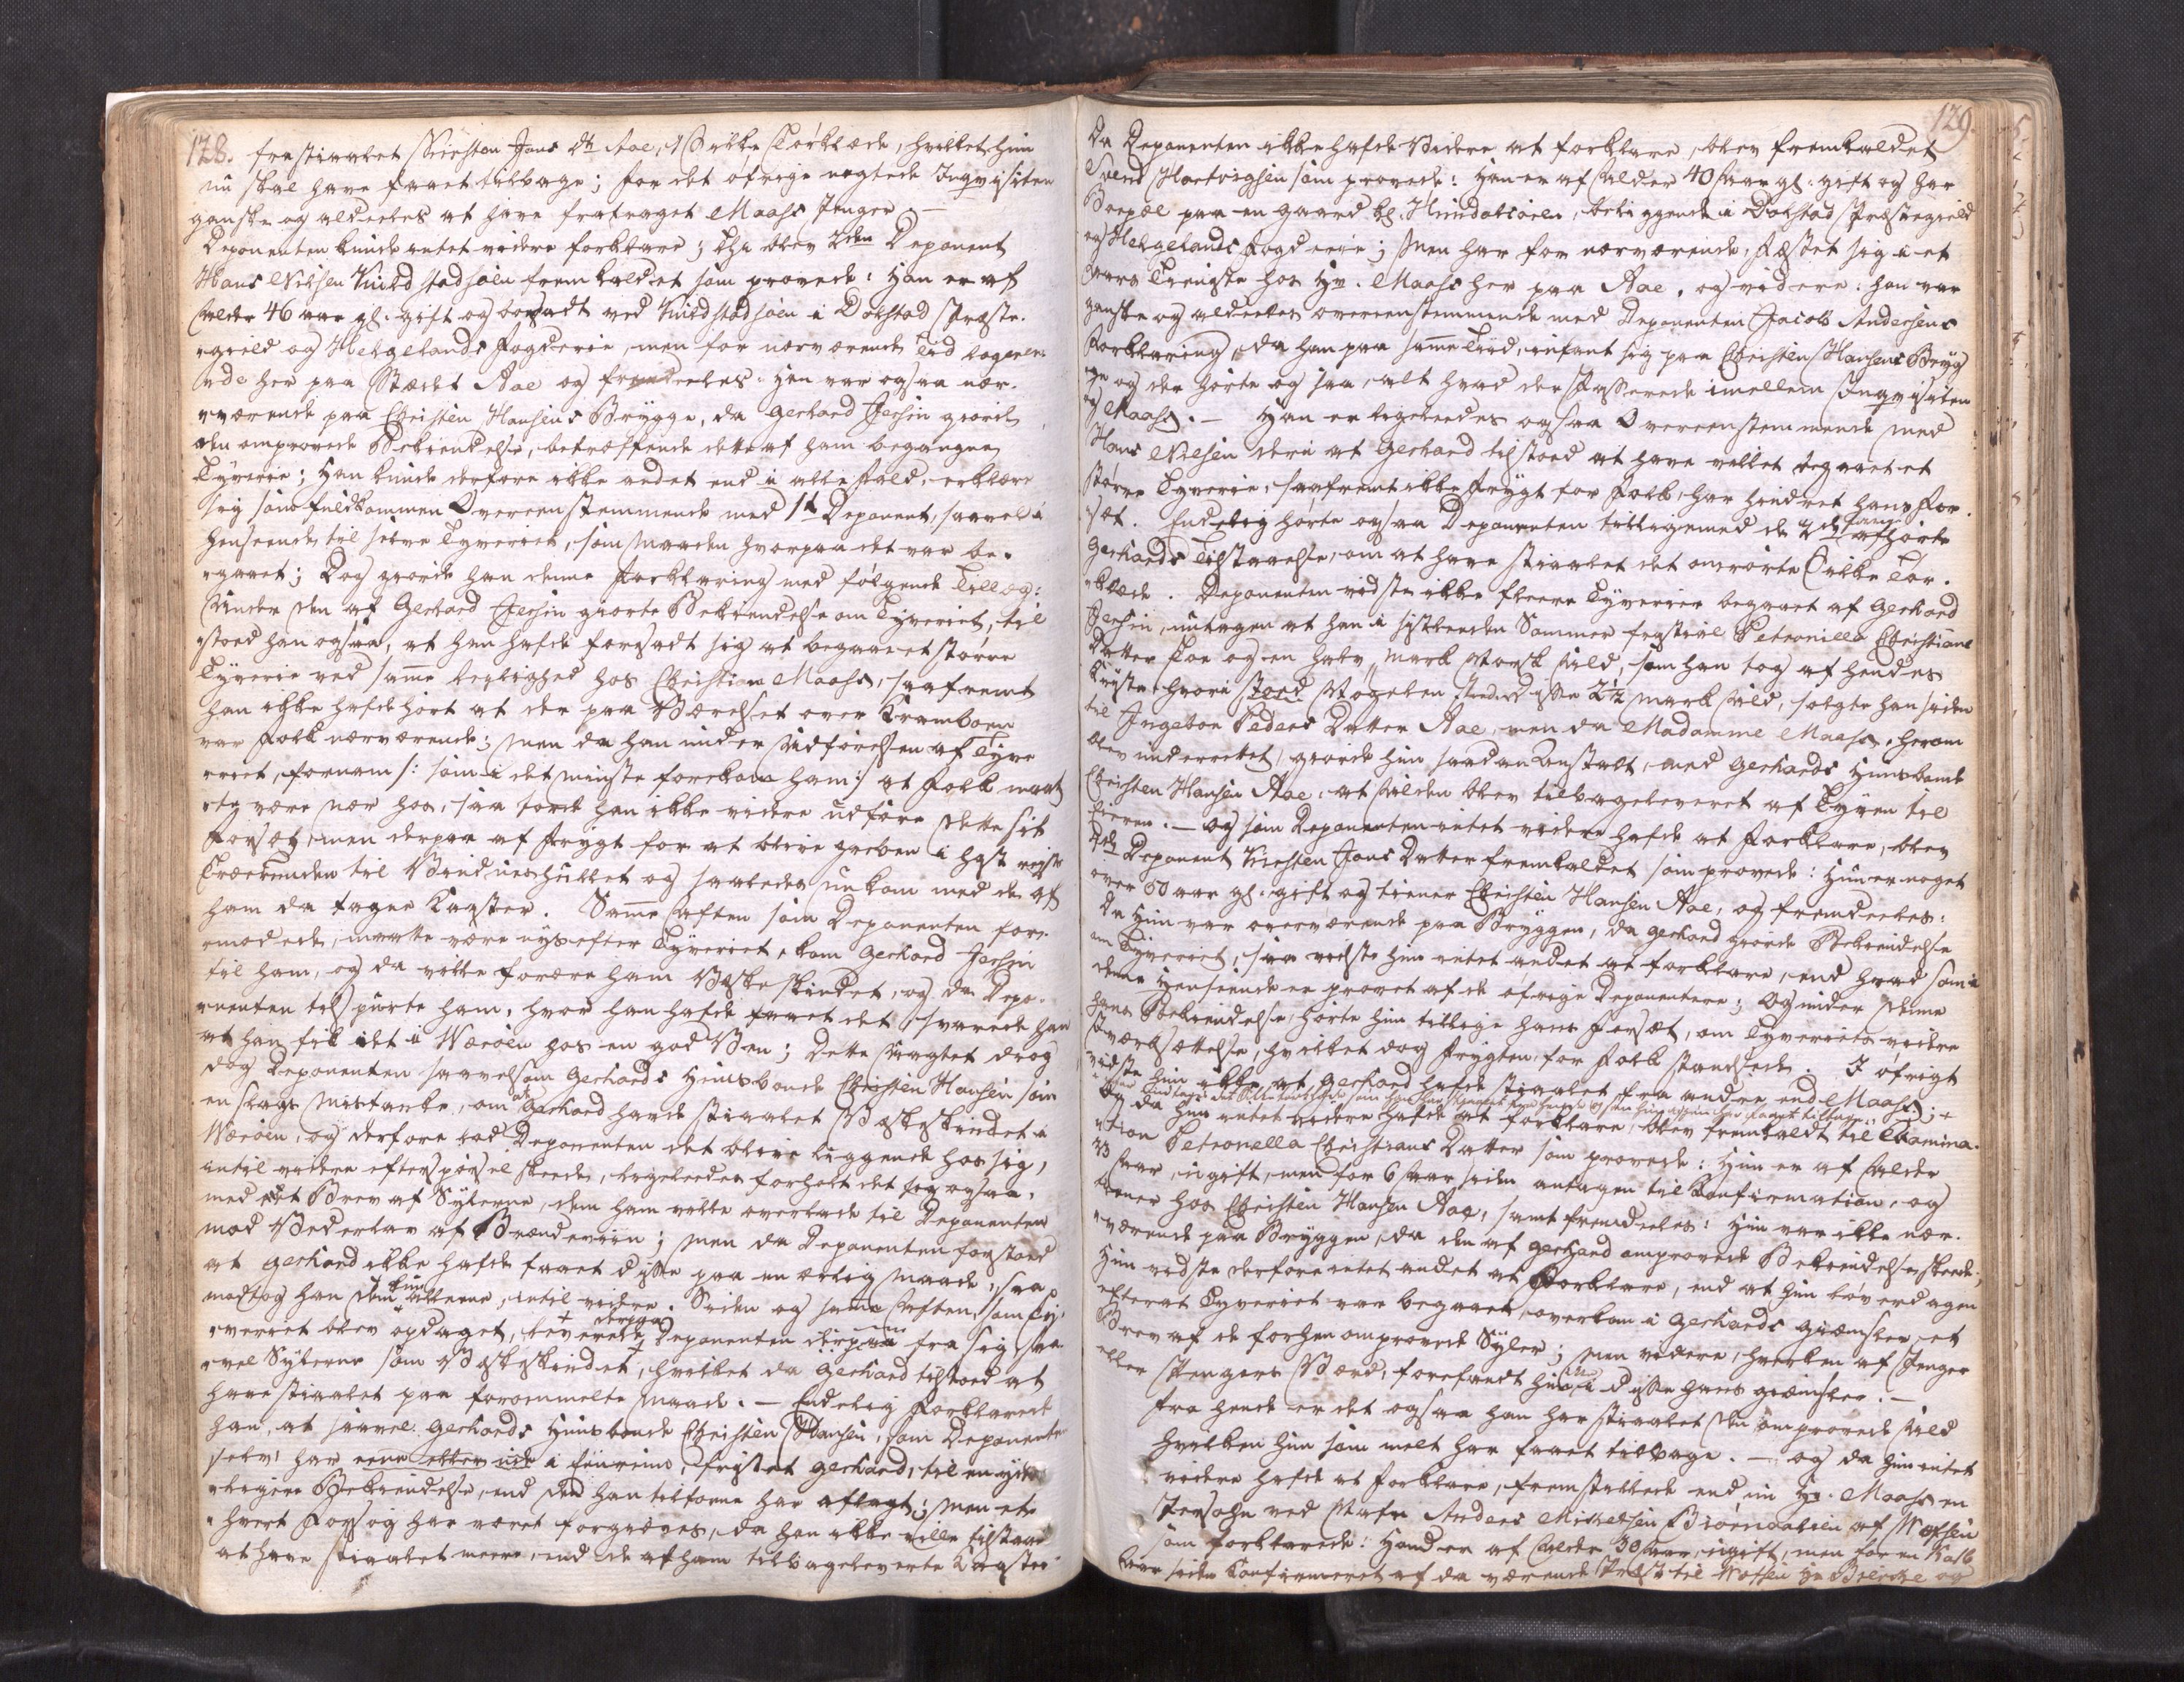 128.
frastiaalet Kirsten Jens Dtr Aae, 1 Silke Tørklæde, hvilket hun
nu skal have faaet tilbage; for det øfrige nægtede Inqvisiten
ganske og aldeeles at have frataget Maass Penger.—
Deponenten kunde intet videre forklare; Thi blev 2den Deponent
Hans Nilsen Qvildstadsøen fremkaldet som provede: Han er af
Alder 46 aar gl: gift og bosadt ved Qvildstadsøen i Dolstad Præste-
gield og Helgelands Fogderie, men for nærværende Tiid logeren-
nde her paa Stædet Aae og fremdeeles: Han var ogsaa nær-
værende paa Christen Hansens Brygge, da Gerhard Jersin giorde
den omprovede Bekiendelse, betræffende dette af ham begangne
Tyverie; Han kunde derfore ikke andet end i alle Fald, erklære
sig som fuldkommen Overeensstemmende med 1te Deponent, saavel i
henseende til selve Tyveriet, som Maaden hvorpaa det var be-
gaaet; Dog giorde han denne Forklaring med følgende Tillæg:
Under den af Gerhard Jersin giorte Bekiendelse om Tyveriet, til-
stoed han ogsaa, at han hafde forsadt sig at begaae et større
Tyverie ved samme leylighed hos Christian Maass, saafremt
han ikke hafde hørt at der paa Værelset over Kramboen
var Folk nærværende; men da han under Udførelsen af Tyve-
riet, fornam /: som i det minste forekom ham :/ at Folk maat-
te være nær hos, saa torde han ikke videre udføre dette sit
Forsæt, men derpaa af Frygt for at blive greben i hast reiste
til Vindueshullet og saaledes undkom med de af
ham da tagne Kaaster. Samme Aften som Deponenten for-
moder, maatte være nys efter Tyveriet, kom Gerhard Jersin
til ham, og da vilde forære ham Væskeskindet, og da Depo-
nenten tilspurte ham, hvor han hafde faaet det, svarede han
at han fik det i Værøen hos en god Ven; Dette Uagtet drog
dog Deponenten saavelsom Gerhards Huusbonde Christen Hansen som
en slags Mistanke, om at Gerhard havde stiaalet Væskeskindet i
Værøen, og derfore lod Deponenten det blive liggende hos sig,
intil videre efterspørsel skeede, ligeleedes forholt det sig ogsaa,
med et Brev af Sylerne, dem ham vilde overlade til Deponenten
mod Vederlav af Brændeviin; men da Deponenten forstoed
at Gerhard ikke hafde faaet disse paa en ærlig Maade, saa
modtog han dem kun allene, intil videre. Siden og samme Aften, som Ty-
veriet blev opdaget, leverede derpaa Deponenten fra sig saa-
vel Sylerne som Væskeskindet, hvilket da Gerhard tilstoed at
have stiaalet paa forommelte Maade.— Endelig Forklarede
han, at saavel Gerhards Huusbonde Christen Hansen, som Deponenten
selv, har i eenrum, fristet Gerhard, til en yder-
ligere Bekiendelse, end den han tilforne har aflagt; men et-
hvert Forsøg har været forgiæves, da han ikke ville tilstaae
at have stiaalet meere, end de af ham tilbageleverte Kaaster
129.
Da Deponenten ikke hafde Videre at forklare, blev fremkaldet
Svend Hartvigsen som provede: Han er af Alder 40 Aar gl: gift og har
Boepæl paa en gaard kl: Hundaalsøren, beliggende i Dolstad Præstegield
og Helgelands Fogderie; Men har for nærværende, fæstet sig i et
aars Tieniste hos Hr. Maass her paa Aae, og videre: han var
ganske og aldeeles overeenstemmende med Deponenten Jacob Andersens
Forklaring, da han paa samme Tiid, infant sig paa Christen Hansens Bryg-
ge og der hørte og saa, alt hvad der Passerede imellem Inqvisiten
og Maass.— Han er ligeleedes ogsaa Overeenstemmende med
Hans Nilsen deri at Gerhard tilstoed at have villet begaaet et
større Tyverie, saafremt ikke Frygt for Folk, har hindret hans For-
sæt. Endelig hørte ogsaa Deponenten tilligemed de 2de afhørte
Gerhards Tilstaaelse, om at have stiaalet det omrørte Silke Tør-
klæde. Deponenten vidste ikke fleere Tyverier begaaet af Gerhard
Jersin, untagen at han i sistleeden Sommer frastial Petronilla Christians
Datter Toe og en halv Mark Norsk Uld, som han tog af hendes
Kiste, hvori stoed Nøgelen disse 2½ Mark Uld, solgte han siden
til Ingebor Peders Datter Aae, men da Madamme Maass, herom
blev underrettet, giorde hun saadan Anstalt, med Gerhards Huusbonde
Christen Hansen Aae, at Ulden blev tilbageleveret af Tyven til
Eieren.— og som Deponenten intet videre hafde at Forklare, blev
Deponent Kirsten Jens Datter fremkaldet som provede: Hun er noget
over aar gl: gift og tiener Christen Hansen Aae, og fremdeeles:
Da Hun var overværende paa Bryggen, da Gerhard giorde Bekiendelse
om Tyveriet, saa vidste hun intet andet at forklare, end hvad som i
denne Henseende er provet af de øfrige Deponentere; Og under denne
hans Bekiendelse, hørte hun tillige hans Forsæt, om Tyveriets videre
Iværksættelse, hvilket dog Frygten, for Folk standsede. I øfrigt
vidste hun ikke, at Gerhard hafde stiaalet fra andre end Maass; +
+ undtagen det Silketørklæde som han har stiaalet fra hende og som hun igien har faaet tilbage.
Og da hun intet videre hafde at forklare, blev fremkaldt til Examina-
tion Petronella Christians Datter som provede: Hun er af Alder
23 Aar, ugift, men for 6 Aar siden antagen til Confirmation, og
tiener hos Christen Hansen Aae, samt fremdeeles: Hun var ikke nær-
værende paa Bryggen, da den af Gerhard omprovede Bekiendelse skeede;
Hun vidste derfore intet andet at Forklare, end at hun løverdagen
efterat Tyveriet var begaaet, overkom i Gerhards giæmsler, et
Brev af de forhen omprovede Syler; Men videre, hverken af Penger
eller Pengers Værd, forefandt hun i disse hans giæmsler.—
Fra hende er det ogsaa han har stiaalet den omprovede Uld
hvilken hun som melt har faaet tilbage.— og da hun intet
videre hafde at Forklare, fremstillede end nu Hr. Maass en
Persohn ved Nafn Anders Mickelsen af Wefsen
som forklarede: Hand er af Alder 30 Aar, ugift, men for en halv
aar siden Confirmeret af da værende Præst til Wefsen Hr og